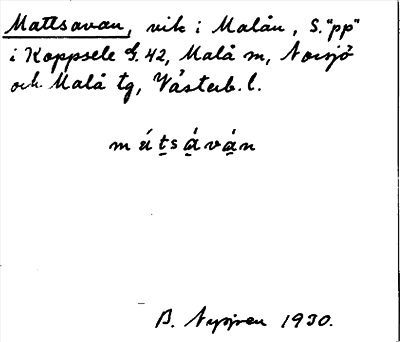 Mattsavan, vik i Malån, S. "pp"
i Koppsele G. 42, Malå sn, Norsjö
och Malå tg, Västerb. l.
mát̲sá̲vá̲n
B. Nygren 1930.